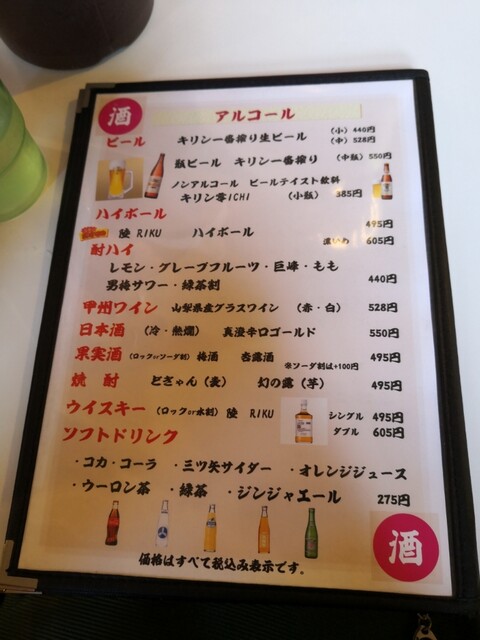 酒
アルコール
ビール キリン一番搾り生ビール (小) 440円
(中) 528円
瓶ビール キリン一番搾り (中瓶) 550円
ノンアルコール ビールテイスト飲料
キリン零ICHI (小瓶) 385円
ハイボール
陸 RIKU ハイボール 495円
濃いめ 605円
酎ハイ
レモン・グレープフルーツ・巨峰・もも
男梅サワー・緑茶割 440円
甲州ワイン 山梨県産グラスワイン (赤・白) 528円
日本酒 (冷・熱燗) 真澄辛口ゴールド 550円
果実酒 (ロックorソーダ割) 梅酒 杏露酒 495円
※ソーダ割は+100円
焼酎 どぎゃん (麦) 幻の露 (芋) 495円
ウイスキー (ロックor水割) 陸 RIKU シングル 495円
ダブル 605円
ソフトドリンク
・コカ・コーラ ・三ツ矢サイダー ・オレンジジュース
・ウーロン茶 ・緑茶 ・ジンジャエール 275円
価格はすべて税込み表示です。
酒